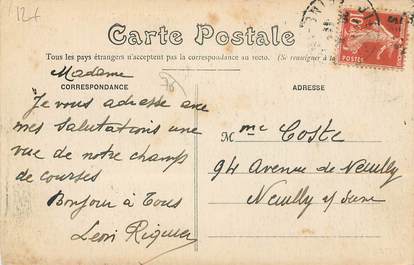 124
Carte Postale
Tous les pays étrangers n'acceptent pas la correspondance au recto. (Se renseigner à la
CORRESPONDANCE
ADRESSE
Madame
76
Je vous adresse avec
mes salutations une
vue de notre champ
de courses
Bonjour à Tous
Léon
Mme Coste
94 Avenue de Neuilly
Neuilly s/ Seine
10